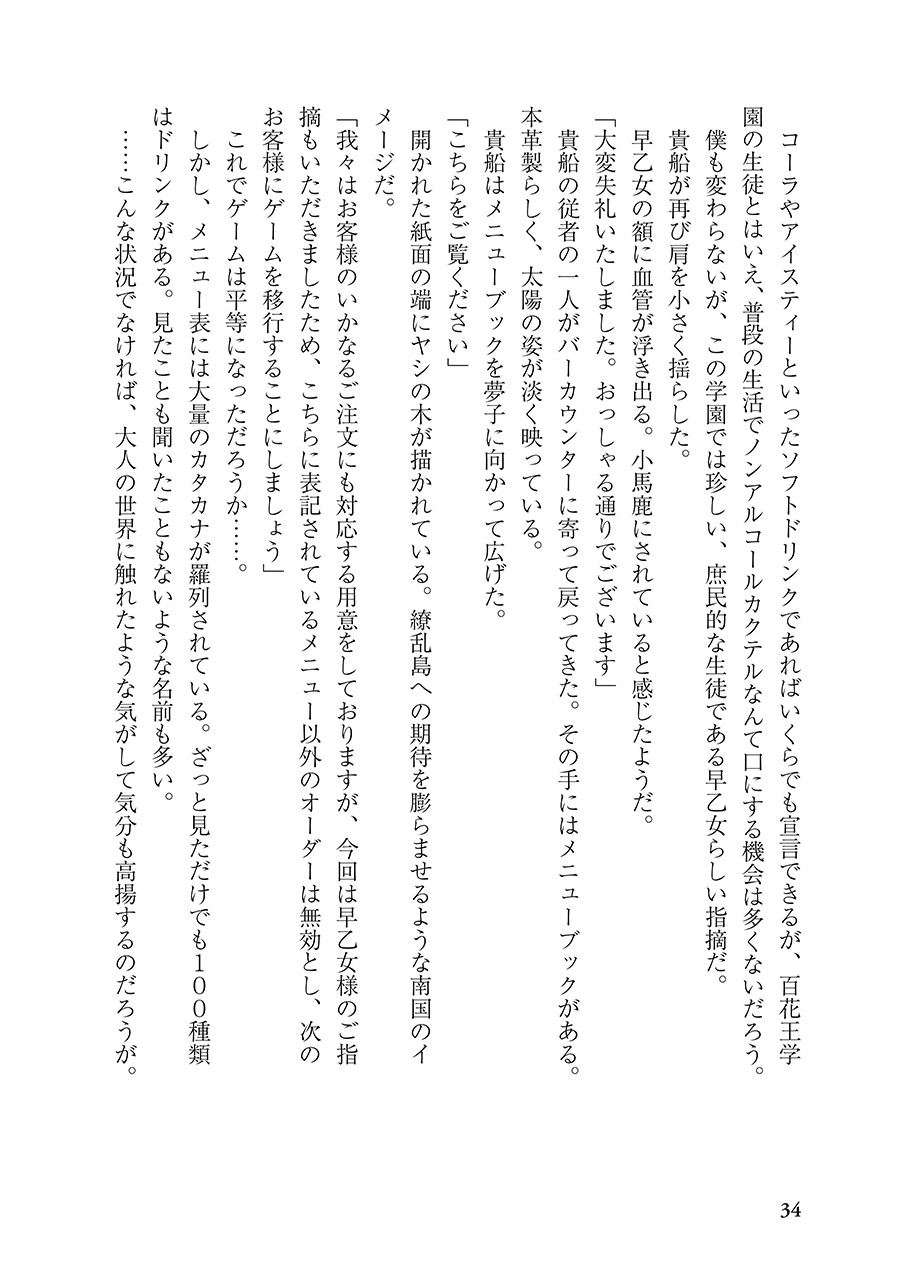 コーラやアイスティーといったソフトドリンクであればいくらでも宣言できるが、百花王学
園の生徒とはいえ、普段の生活でノンアルコールカクテルなんて口にする機会は多くないだろう。
　僕も変わらないが、この学園では珍しい、庶民的な生徒である早乙女らしい指摘だ。
　貴船が再び肩を小さく揺らした。
　早乙女の額に血管が浮き出る。小馬鹿にされていると感じたようだ。
「大変失礼いたしました。おっしゃる通りでございます」
　貴船の従者の一人がバーカウンターに寄って戻ってきた。その手にはメニューブックがある。
本革製らしく、太陽の姿が淡く映っている。
　貴船はメニューブックを夢子に向かって広げた。
「こちらをご覧ください」
　開かれた紙面の端にヤシの木が描かれている。繚乱島への期待を膨らませるような南国のイ
メージだ。
「我々はお客様のいかなるご注文にも対応する用意をしておりますが、今回は早乙女様のご指
摘もいただきましたため、こちらに表記されているメニュー以外のオーダーは無効とし、次の
お客様にゲームを移行することにしましょう」
　これでゲームは平等になっただろうか……。
　しかし、メニュー表には大量のカタカナが羅列されている。ざっと見ただけでも１００種類
はドリンクがある。見たことも聞いたこともないような名前も多い。
　……こんな状況でなければ、大人の世界に触れたような気がして気分も高揚するのだろうが。
34